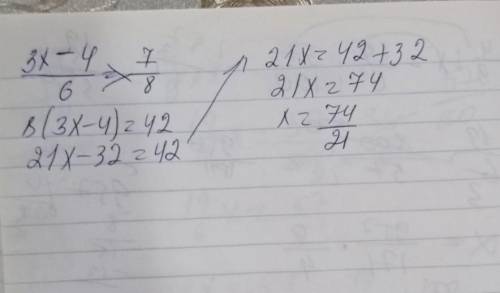 (3x-4)/6 = 7/8
8(3x-4)=42
21x-32=42
21x=42+32
21x=74
x=74/21